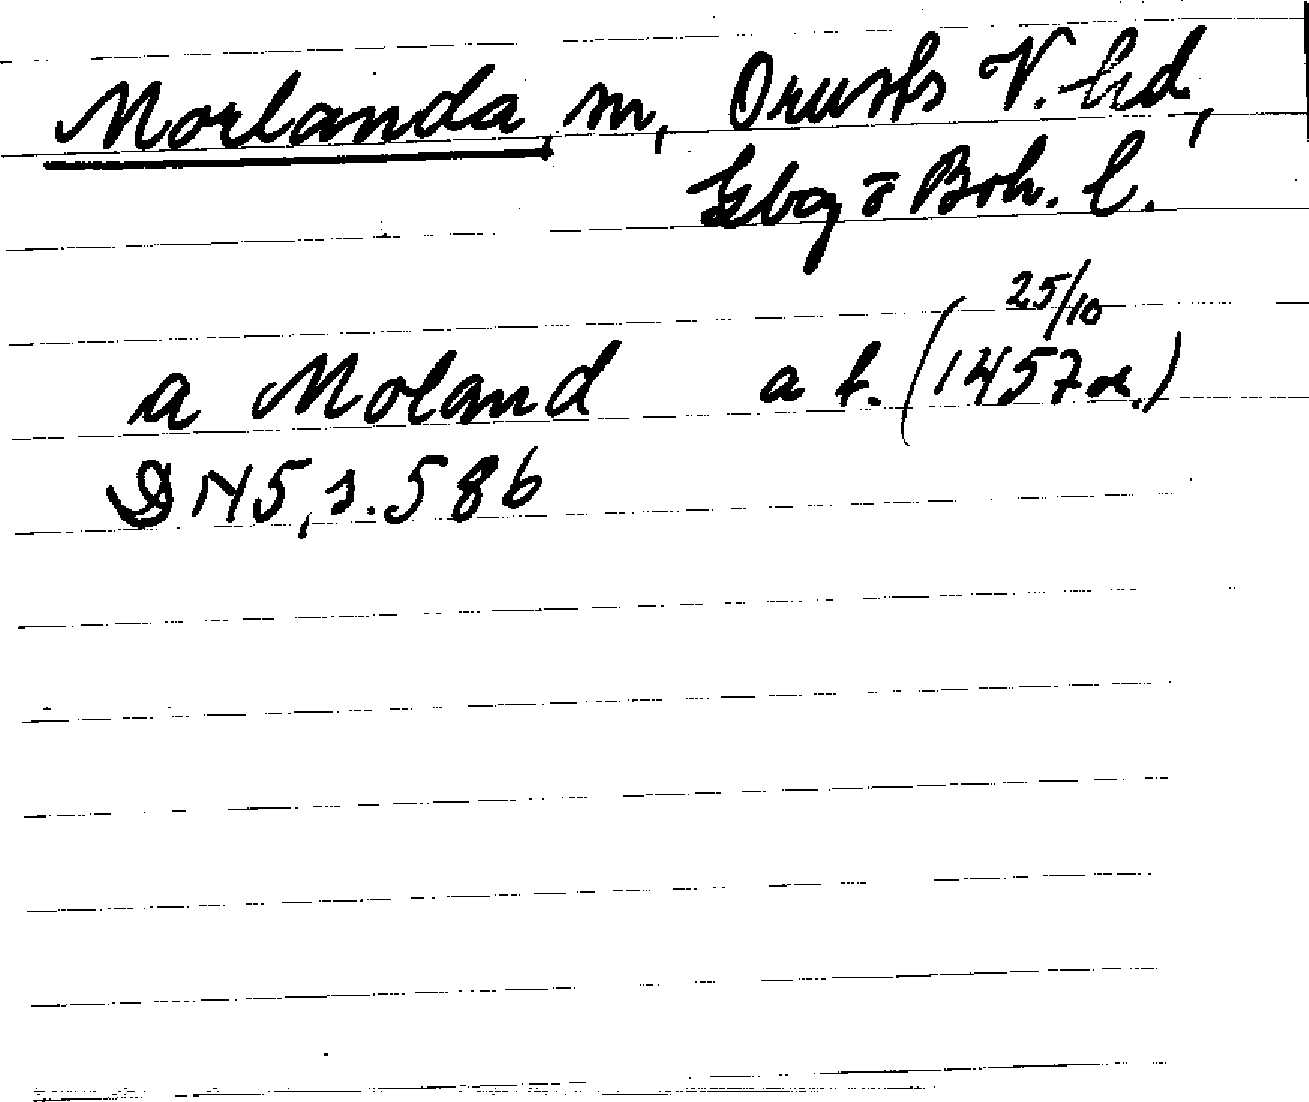 Morlanda, sn, Orusts V. hd,
Gbg o Boh. l.
25/10
a Moland a f. (1457 or.)
DN 5, s. 586